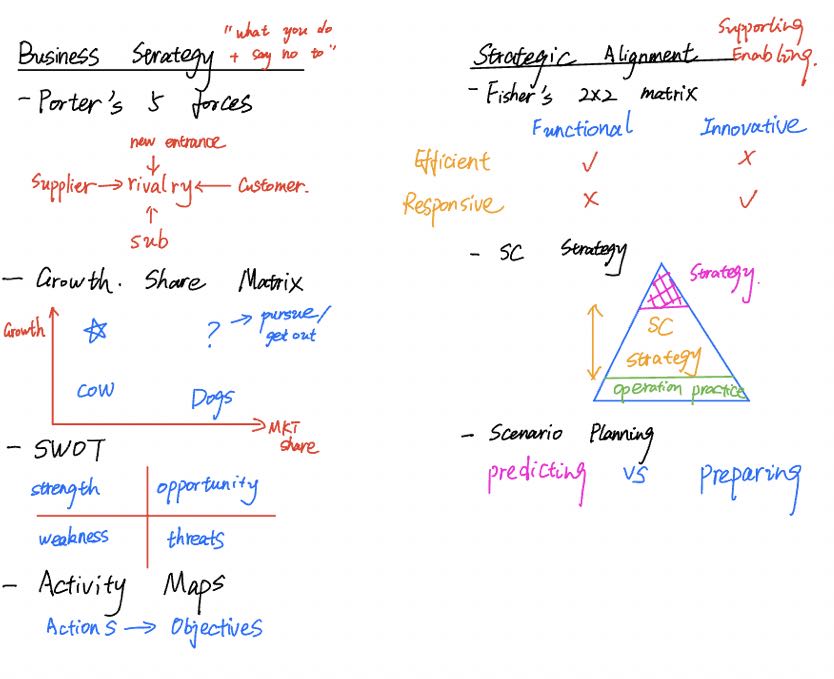 Business Strategy
"what you do
+ say no to"
- Porter's 5 forces
new entrance
Supplier → rivalry ← Customer.
sub
- Growth. Share Matrix
Growth
☆ ? → pursue/
get out
COW Dogs
MKT
share
- SWOT
strength opportunity
weakness threats
- Activity Maps
Actions → Objectives
Strategic Alignment
Supporting
Enabling.
- Fisher's 2x2 matrix
Functional Innovative
Efficient ✓ ×
Responsive × ✓
- SC Strategy
Strategy.
SC
Strategy
operation practice
- Scenario Planning
predicting VS preparing